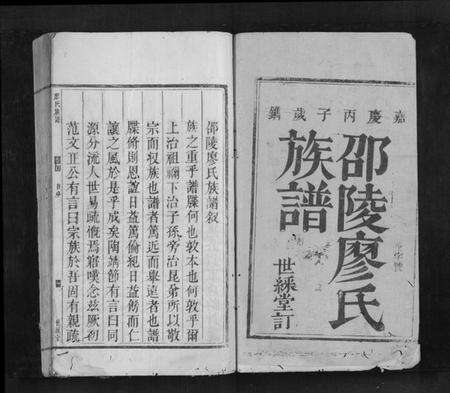 嘉慶丙子歲鐫
邵陵廖氏
族譜
世綵堂訂
邵陵廖氏族譜敘
族之重乎譜牒何也敦本也何敦乎爾
上治祖禰下治子孫旁治昆弟所以敬
宗而收族也譜者篤近而舉遠者也譜
牒脩則恩誼日益篤倫紀日益飭而仁
讓之風於是乎成矣陶靖節有言曰同
源分流人世易疏慨焉寤嘆念茲厥初
范文正公有言曰宗族於吾固有親疏